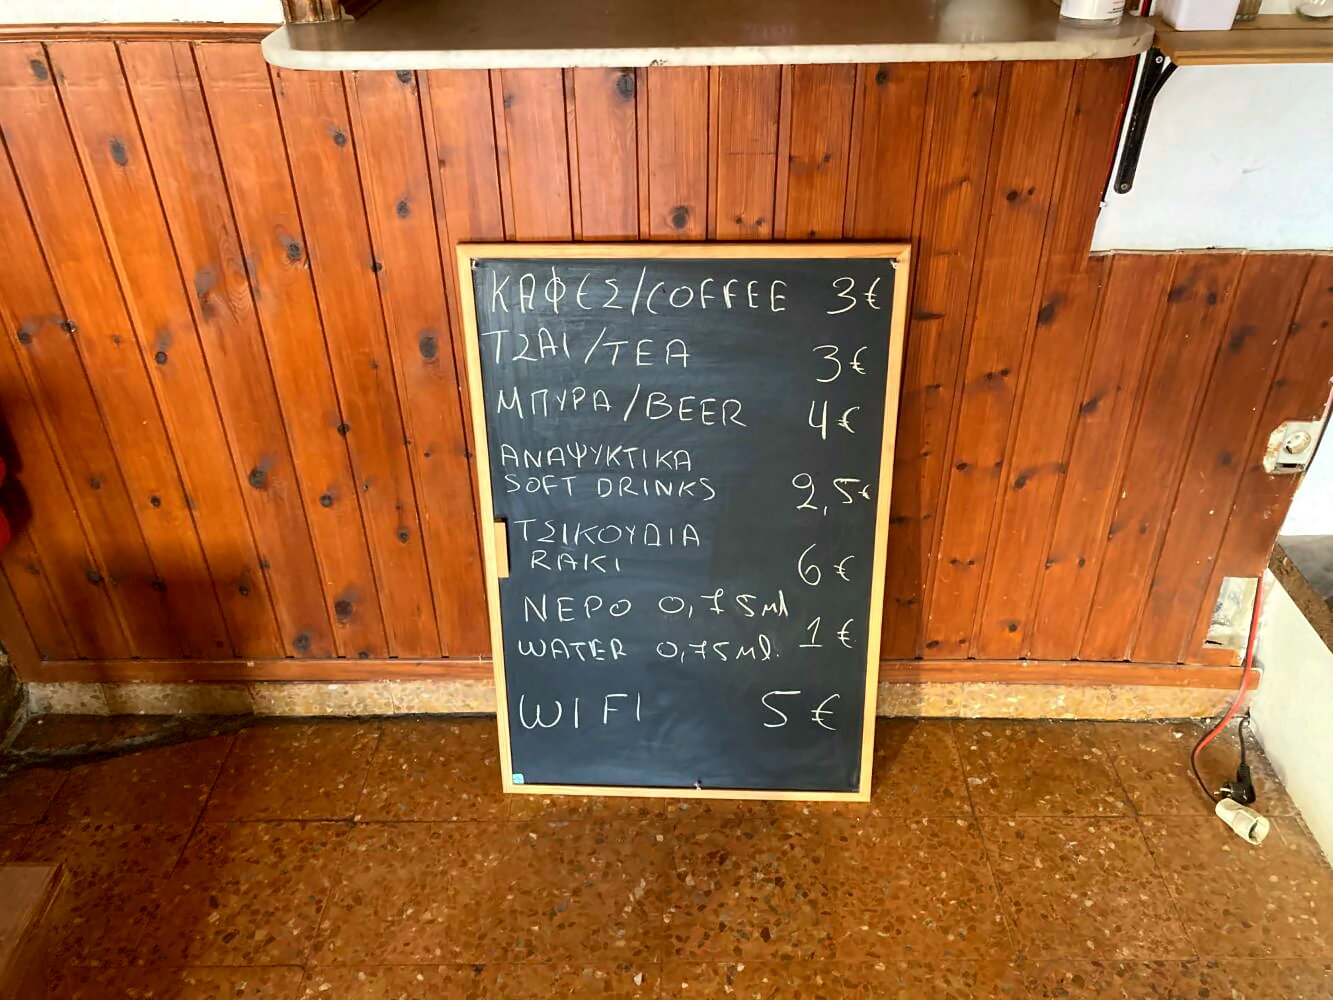 ΚΑΦΕΣ/COFFEE 3€
ΤΣΑΙ/TEA 3€
ΜΠΥΡΑ/BEER 4€
ΑΝΑΨΥΚΤΙΚΑ
SOFT DRINKS 2,5€
ΤΣΙΚΟΥΔΙΑ
RAKI 6€
ΝΕΡΟ 0,75ml
WATER 0,75ml. 1€
WIFI 5€